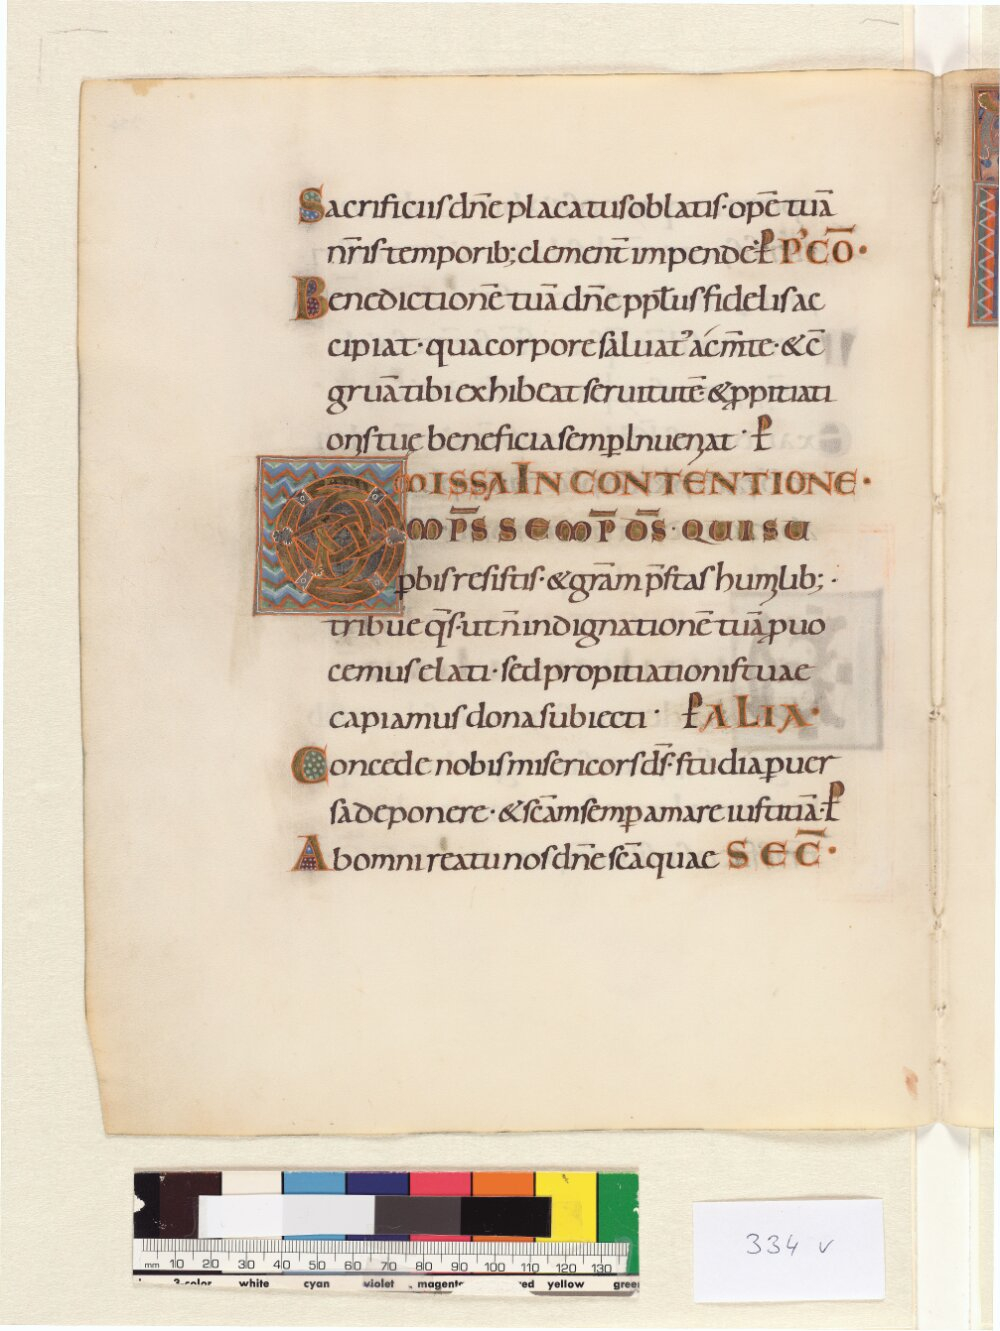 Sacrificiis dn̄e placatus oblatis· opē tuā
nr̄is temporib; clemenṫ impende· P̄ P'CŌ·
Benedictionē tuā dn̄e pp̄l'us fidelis ac
cipiat· qua corpore saluat' ac m̄te· & c̄
gruā tibi exhibeat seruitutē· & ꝓpitiati
onis tuę beneficia semꝑ Inueniat· P̄
MISSA IN CONTENTIONE·
OMP̄S SEMP̄ D̄S· QUI SU
ꝑbis resistis· & grām p̄stas humilib;·
tribue q̄s· ut n̄ indignationē tuā ꝓuo
cemus elati· sed propitiationis tuae
capiamus dona subiecti· P̄ ALIA·
Concede nobis misericors d̄s· studia ꝑuer
sa deponere· & sc̄am semꝑ amare iustitiā· P̄
Ab omni reatu nos dn̄e sc̄a quae SEC̄·
mm 10 20 30 40 50 60 70 80 90 100 110 120 130
3-color white cyan violet magenta red yellow green
334 v